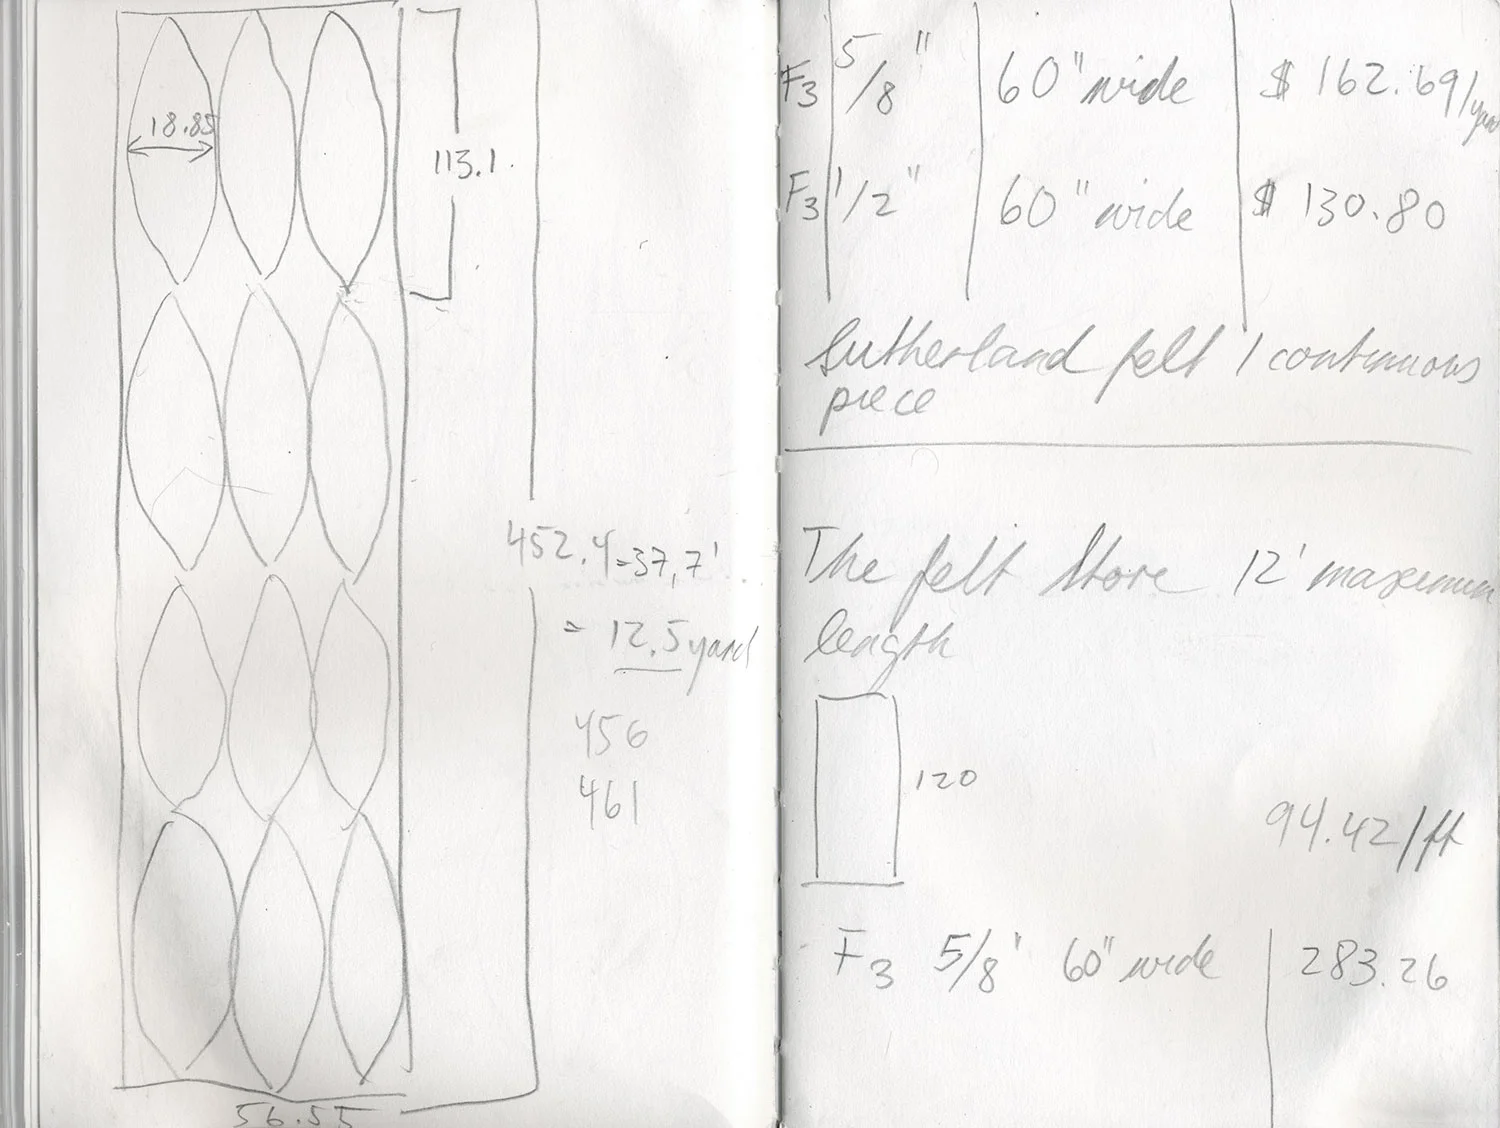 18.85
113.1.
452.4=37,7'
= 12.5 yard
456
461
56.55
F3 5/8" 60" wide $ 162.69/yard
F3 1/2" 60" wide $ 130.80
Sutherland felt 1 continuous
piece
The felt Store 12' maximum
length
120
94.42/ft
F3 5/8" 60" wide 283.26